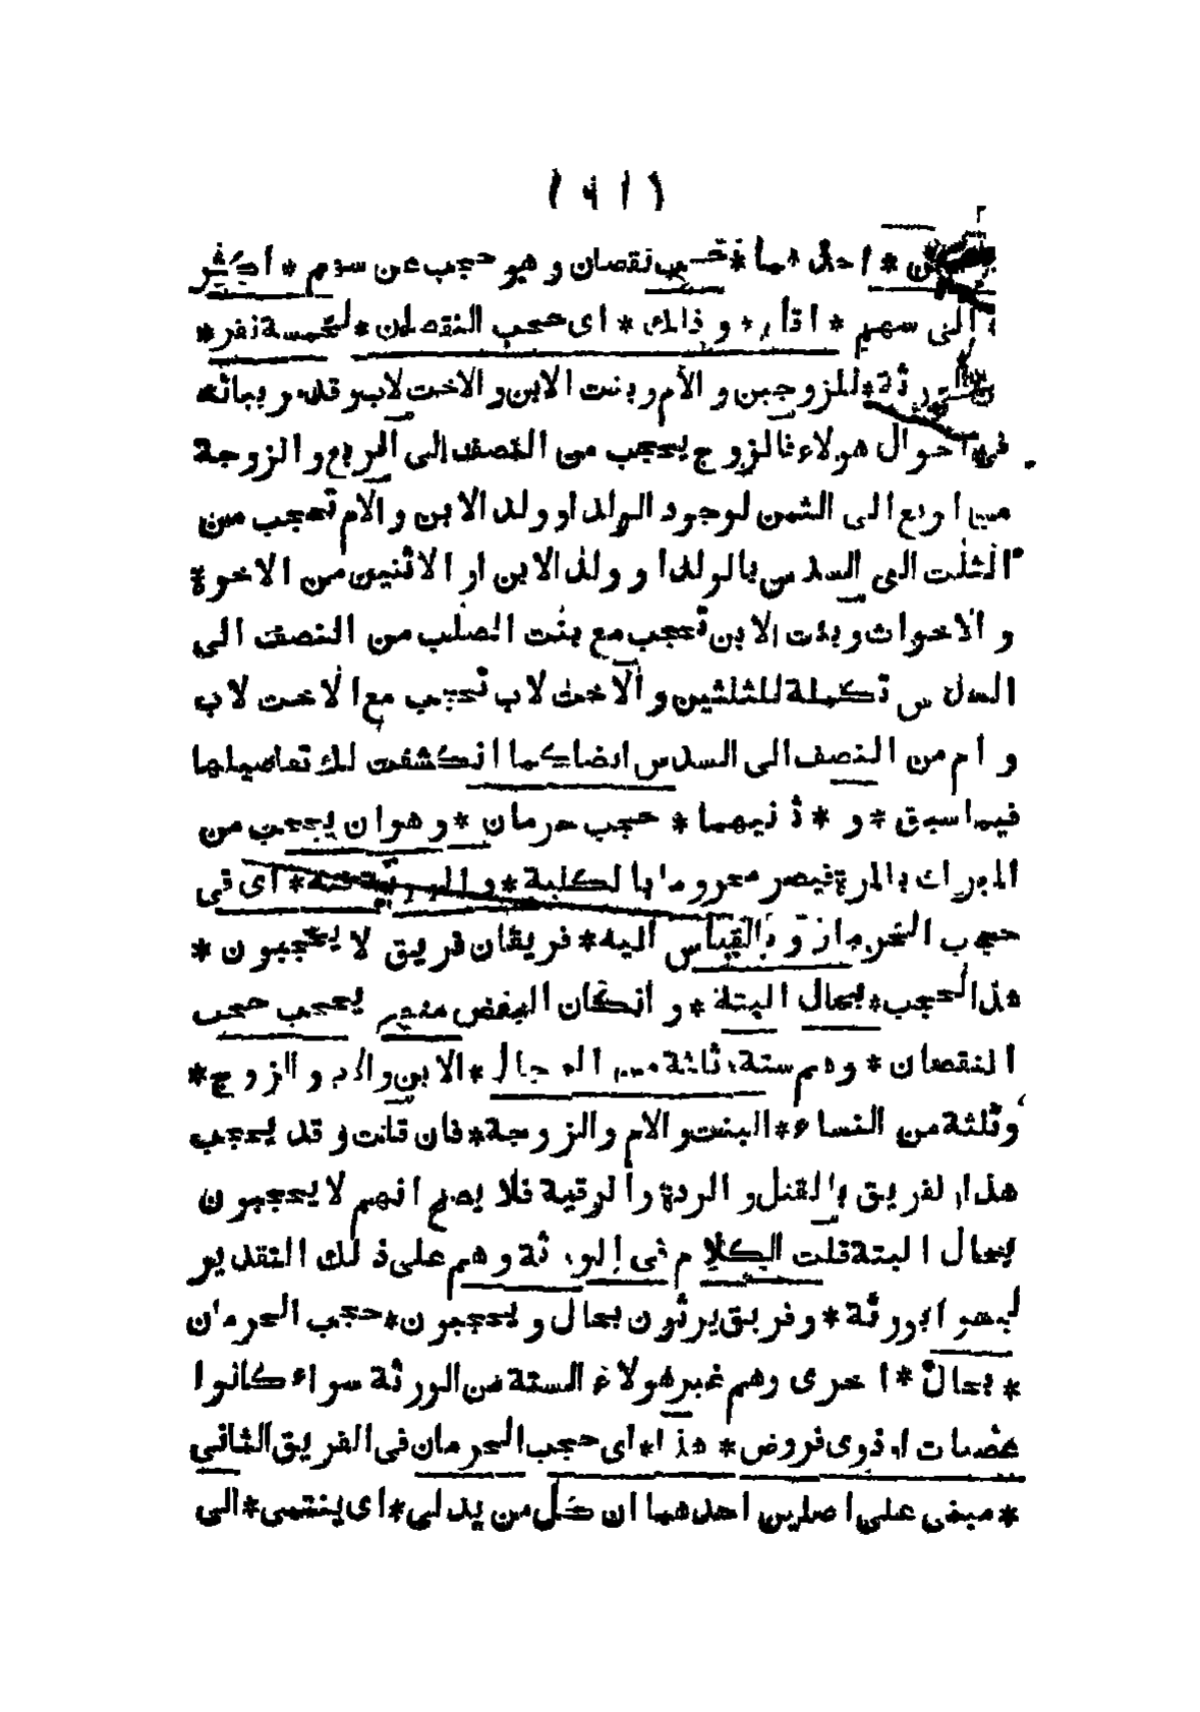 ن * احدهما * حجب نقصان وهو حجب عن سهم * اكثر
الى سهم * اقل * وذلك * اى حجب النقصان * لخمسة نفر *
ورثة * للزوجين والام وبنت الابن والاخت لاب وقد مر بيانه
فى احوال هولاء فالزوج يحجب من النصف الى الربع والزوجة
من الربع الى الثمن لوجود الولد او ولد الابن والام تحجب من
الثلث الى السدس بالولد او ولد الابن او الاثنين من الاخوة
والاخوات وبنت الابن تحجب مع بنت الصلب من النصف الى
السدس تكملة للثلثين والاخت لاب تحجب مع الاخت لاب
وام من النصف الى السدس ايضا كما انكشفت لك تفاصيلها
فيما سبق * و * ثانيهما * حجب حرمان * وهو ان يحجب من
الميراث بالمرة فيصير محروما بالكلية * والورثة فيه * اى فى
حجب الحرمان وبالقياس اليه * فريقان فريق لا يحجبون *
هذا الحجب * بحال البتة * وانكان البعض منهم يحجب حجب
النقصان * وهم ستة ثلثة من الرجال * الابن والاب والزوج *
وثلثة من النساء * البنت والام والزوجة * فان قلت وقد يحجب
هذا الفريق بالقتل والردة والرقية فلا يصح انهم لا يحجبون
بحال البتة قلت الكلام فى الورثة وهم على ذلك التقدير
ليسوا بورثة * وفريق يرثون بحال ويحجبون * حجب الحرمان
* بحال * اخرى وهم غير هولاء الستة من الورثة سواء كانوا
عصبات او ذوى فروض * هذا * اى حجب الحرمان فى الفريق الثانى
* مبنى على اصلين احدهما ان كل من يدلى * اى ينتمى * الى